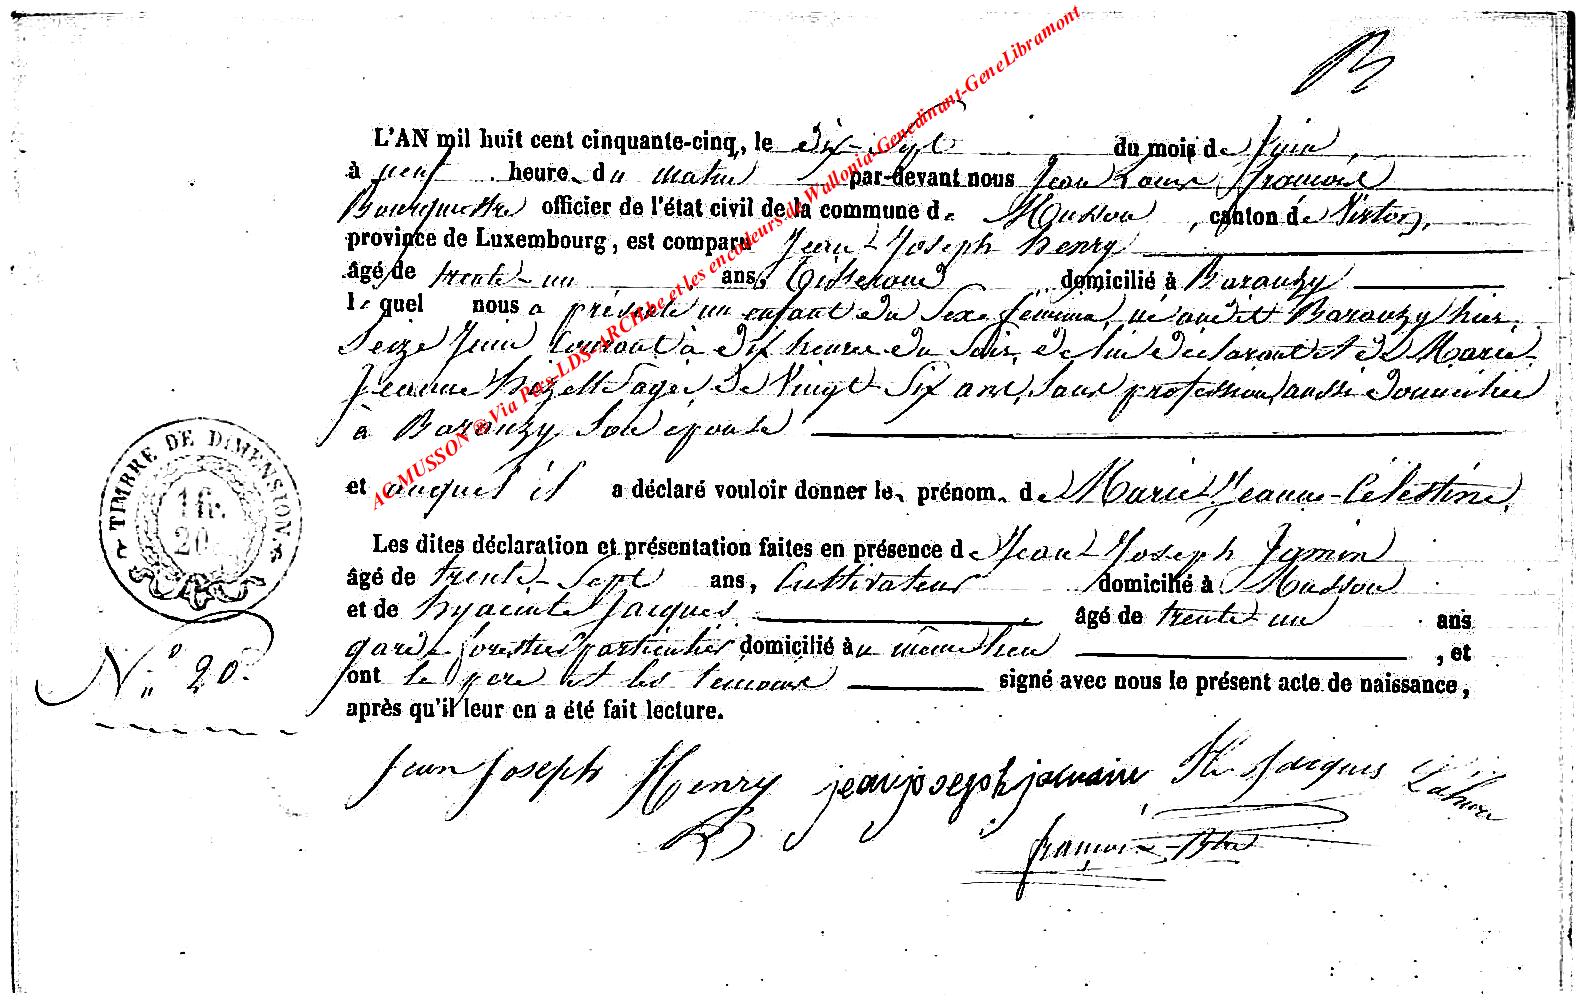 L'AN mil huit cent cinquante-cinq, le dix-sept du mois de Juin,
à neuf heure. du matin par-devant nous Jean Louis François
Bourgmestre officier de l'état civil de la commune de Musson, canton de Virton,
province de Luxembourg, est comparu Jean-Joseph henry
âgé de trente-un ans, Tisserand domicilié à Baranzy
le quel nous a présenté un enfant du Sexe féminin, né audit Baranzy hier,
Seize Juin Courant à dix heures du Soir, de lui déclarant et de Marie-
Jeanne âgée de Vingt-Six ans, Sans profession, aussi domiciliée
à Baranzy Son épouse
et auquel il a déclaré vouloir donner le. prénom. de Marie-Jeanne-Célestine.
Les dites déclaration et présentation faites en présence de Jean-Joseph Jamin
âgé de trente-Sept ans, Cultivateur domicilié à Musson
et de hyacinte Jacques âgé de trente-un ans
garde forestier particulier domicilié au même lieu , et
ont le père et les témoins signé avec nous le présent acte de naissance,
après qu'il leur en a été fait lecture.
TIMBRE DE DIMENSION.
1 fr.
20
N° 20.
Jean Joseph Henry jean joseph Hte Jacques
françois
AC MUSSON @ Via Pass-LDS-ARCH.be et les encodeurs de Wallonia-Genedinant-GeneLibramont